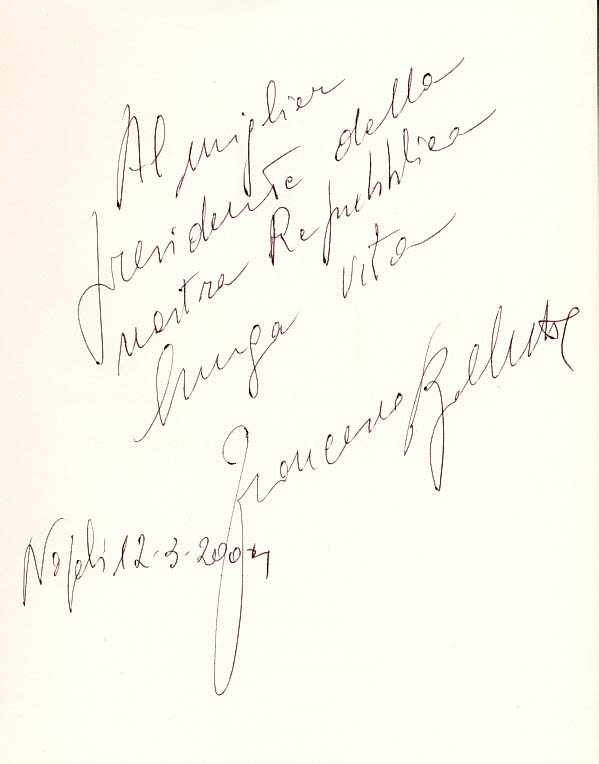 Al miglior
presidente della
nostra Repubblica
lunga vita
Francesco
Napoli 12-3-2004